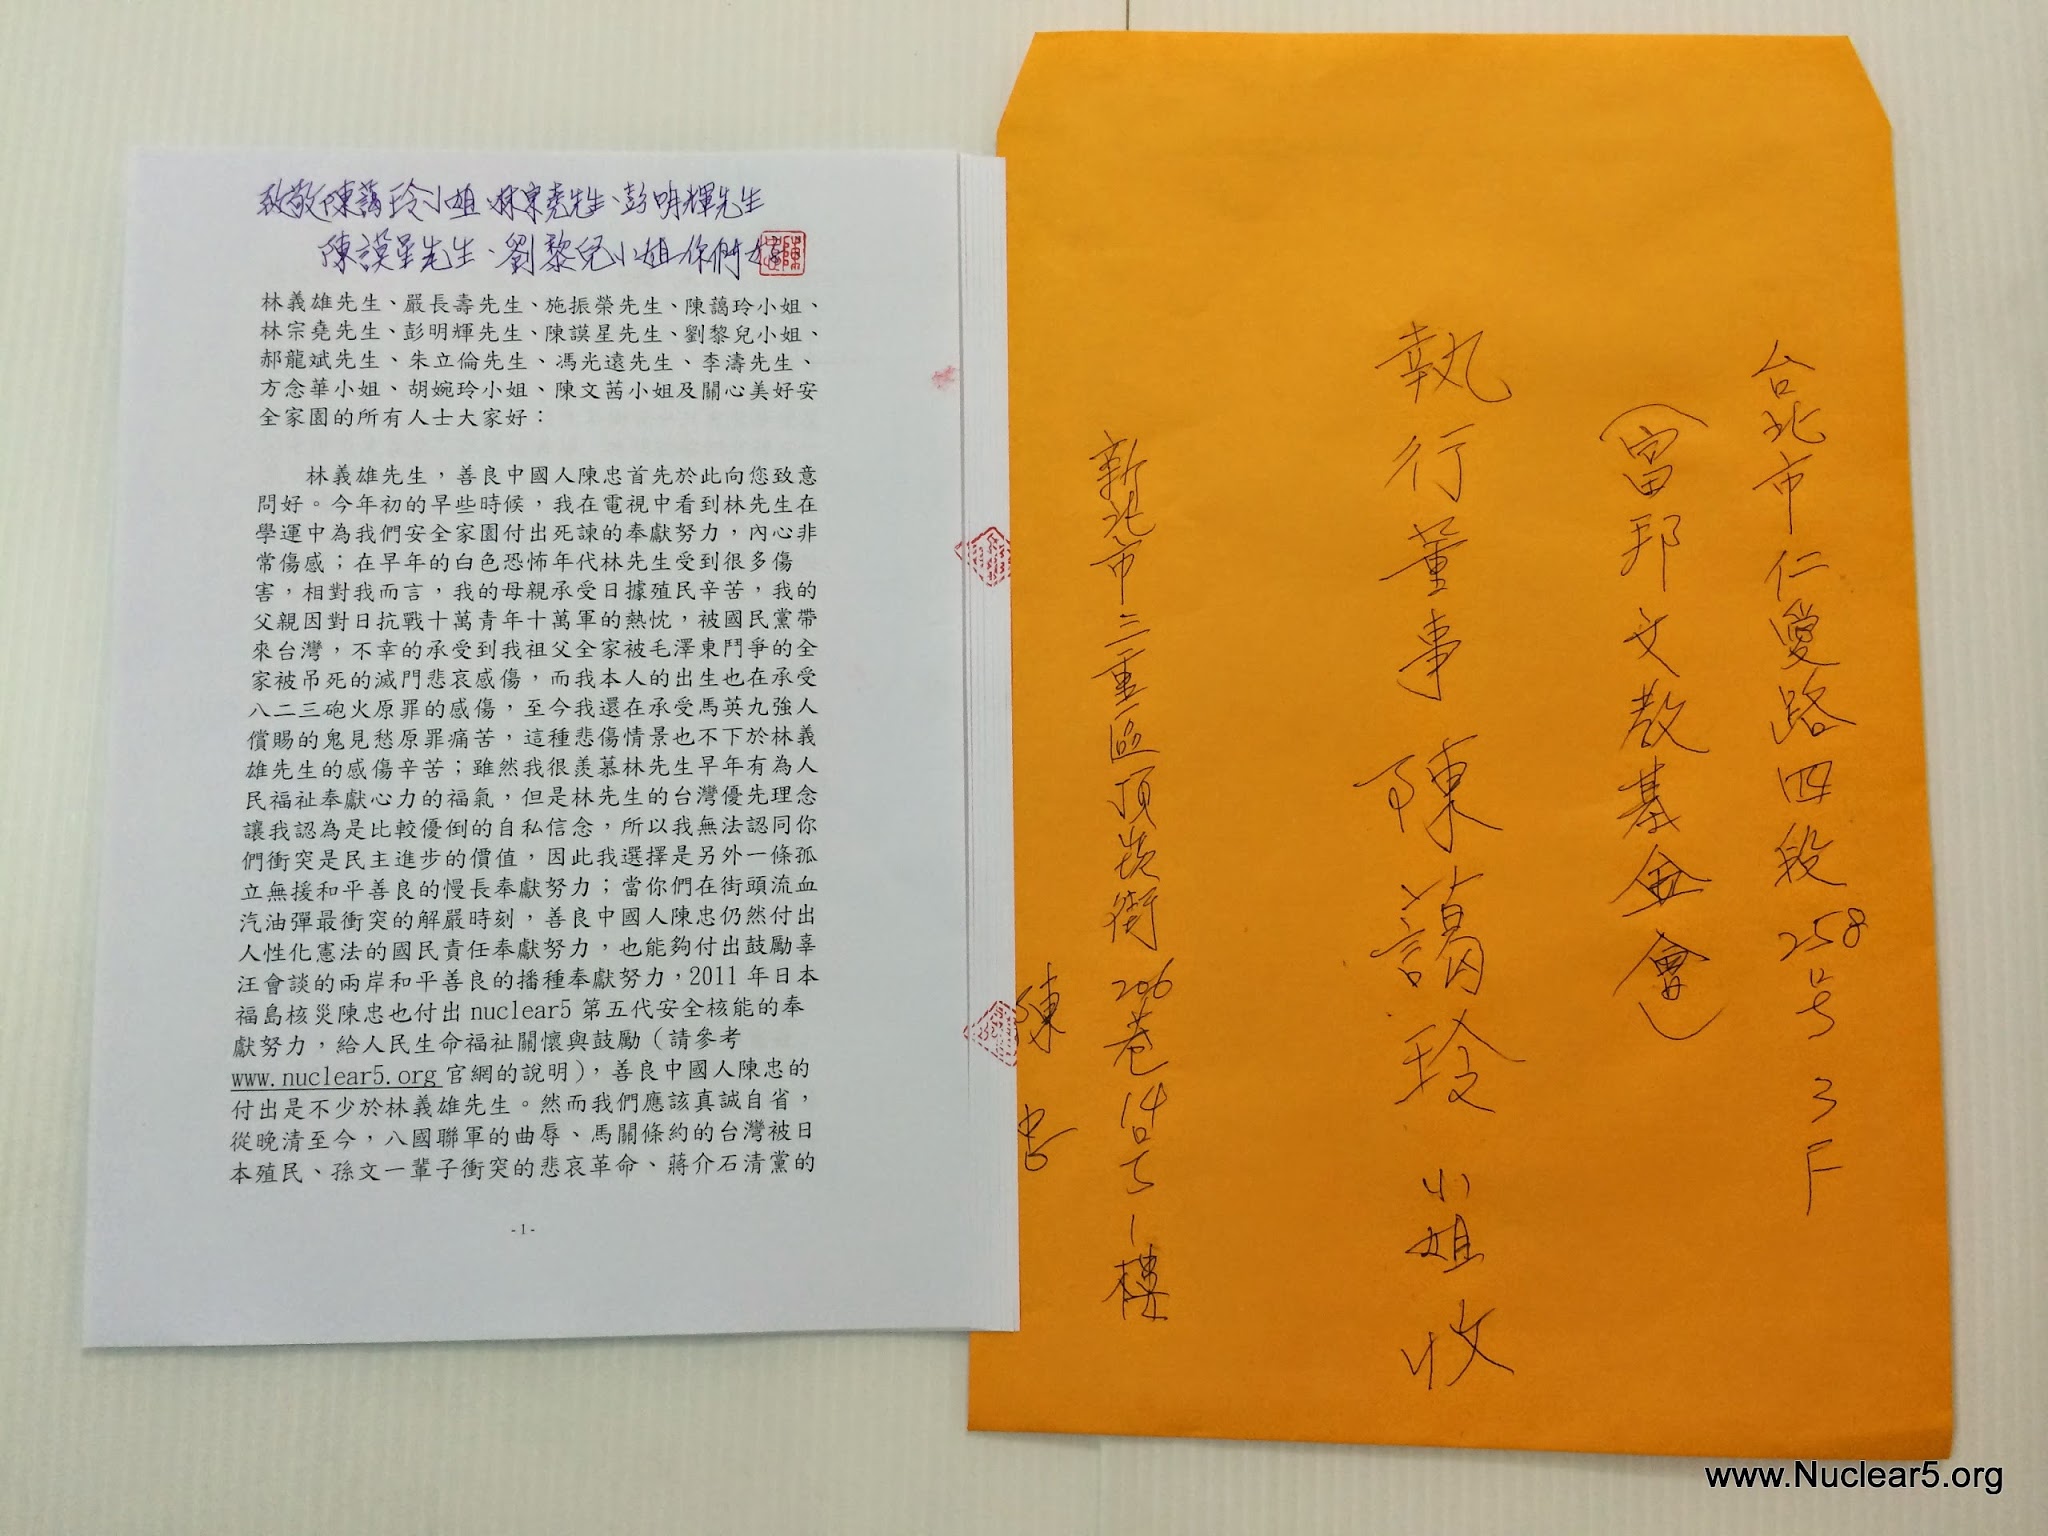 致敬陳藹玲小姐、林宗堯先生、彭明輝先生
陳謨星先生、劉黎兒小姐你們好
林義雄先生、嚴長壽先生、施振榮先生、陳藹玲小姐、
林宗堯先生、彭明輝先生、陳謨星先生、劉黎兒小姐、
郝龍斌先生、朱立倫先生、馮光遠先生、李濤先生、
方念華小姐、胡婉玲小姐、陳文茜小姐及關心美好安
全家園的所有人士大家好：
林義雄先生，善良中國人陳忠首先於此向您致意
問好。今年初的早些時候，我在電視中看到林先生在
學運中為我們安全家園付出死諫的奉獻努力，內心非
常傷感；在早年的白色恐怖年代林先生受到很多傷
害，相對我而言，我的母親承受日據殖民辛苦，我的
父親因對日抗戰十萬青年十萬軍的熱忱，被國民黨帶
來台灣，不幸的承受到我祖父全家被毛澤東鬥爭的全
家被吊死的滅門悲哀感傷，而我本人的出生也在承受
八二三砲火原罪的感傷，至今我還在承受馬英九強人
償賜的鬼見愁原罪痛苦，這種悲傷情景也不下於林義
雄先生的感傷辛苦；雖然我很羨慕林先生早年有為人
民福祉奉獻心力的福氣，但是林先生的台灣優先理念
讓我認為是比較優倒的自私信念，所以我無法認同你
們衝突是民主進步的價值，因此我選擇是另外一條孤
立無援和平善良的慢長奉獻努力；當你們在街頭流血
汽油彈最衝突的解嚴時刻，善良中國人陳忠仍然付出
人性化憲法的國民責任奉獻努力，也能夠付出鼓勵辜
汪會談的兩岸和平善良的播種奉獻努力，2011 年日本
福島核災陳忠也付出 nuclear5 第五代安全核能的奉
獻努力，給人民生命福祉關懷與鼓勵（請參考
www.nuclear5.org 官網的說明），善良中國人陳忠的
付出是不少於林義雄先生。然而我們應該真誠自省，
從晚清至今，八國聯軍的曲辱、馬關條約的台灣被日
本殖民、孫文一輩子衝突的悲哀革命、蔣介石清黨的
-1-
台北市仁愛路四段258号3F
（富邦文教基金會）
執行董事 陳藹玲 小姐 收
新北市三重區頂崁街206巷14号1樓
陳忠
www.Nuclear5.org